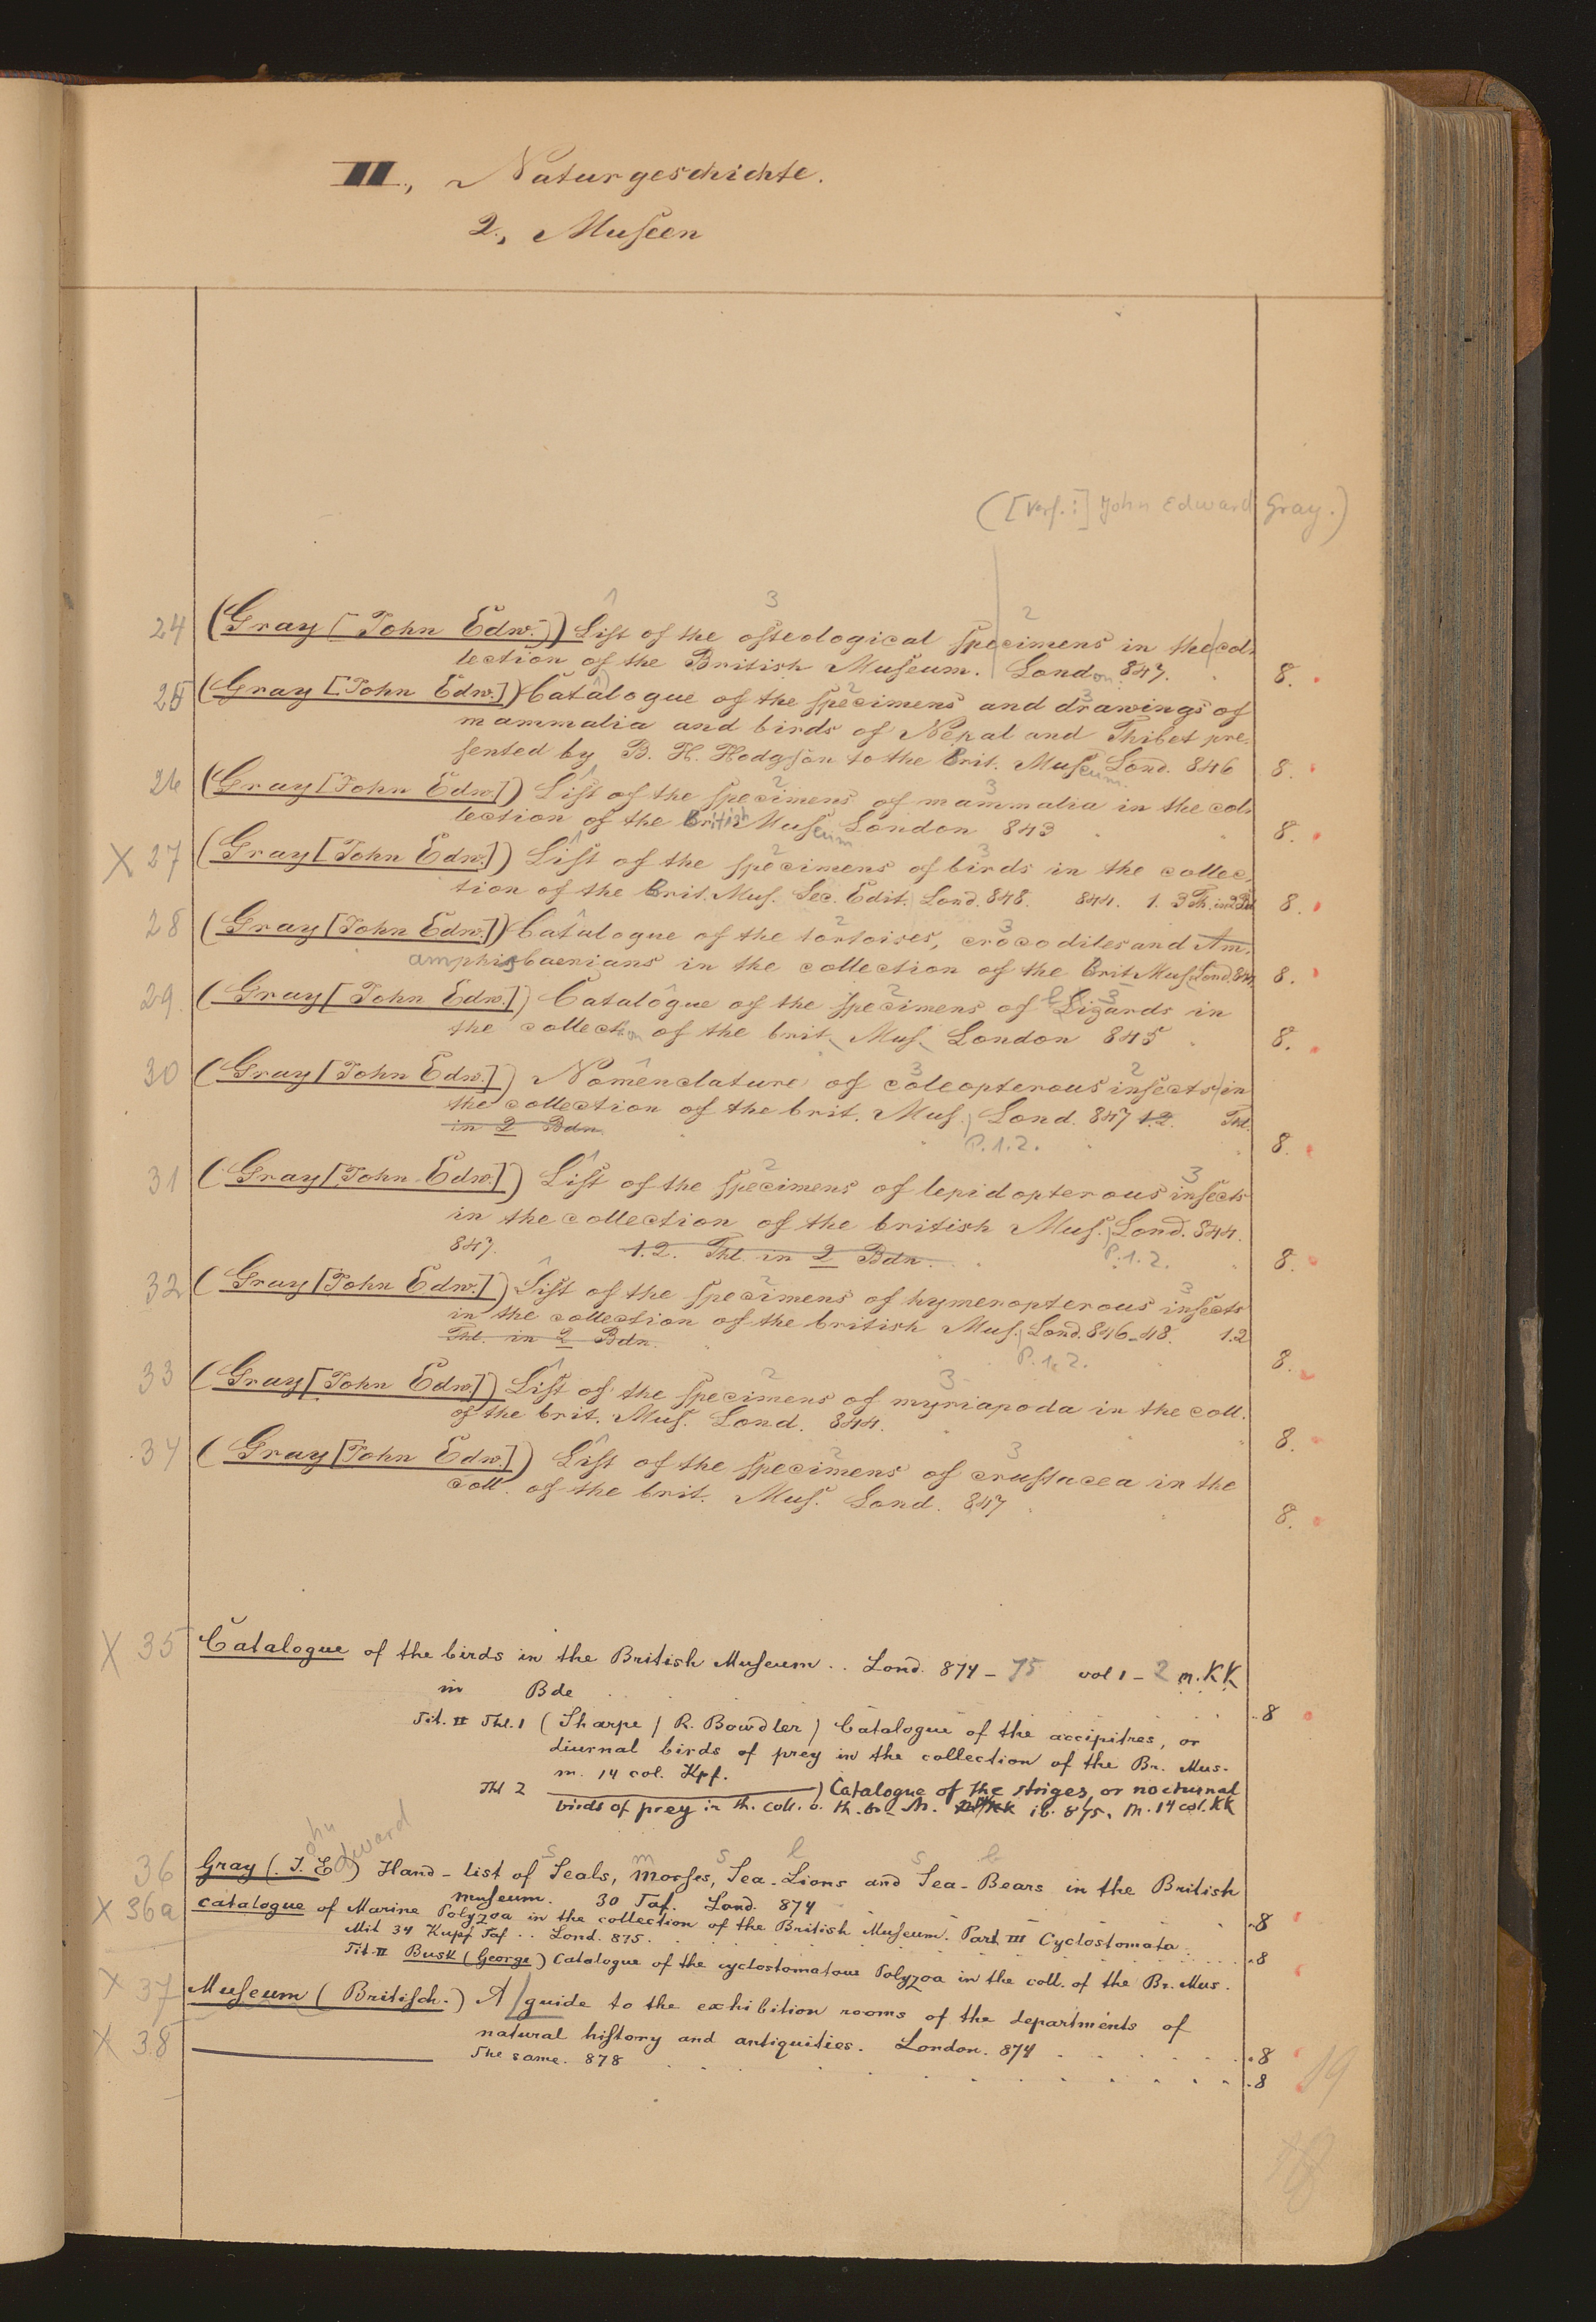 III., Naturgeschichte.
2., Museen
([Verf.:] John Edward Gray.)
1 3 2
24 (Gray [John Edw.]) List of the osteological specimens in the col-
lection of the British Museum. London 847. 8.
25 (Gray [John Edw.]) Catalogue of the specimens and drawings of
mammalia and birds of Nepal and Thibet pre-
sented by B. H. Hodgson to the Brit. Museum. Lond. 846 8.
26 (Gray [John Edw.]) List of the specimens of mammalia in the col-
lection of the British Museum London 843 8.
X 27 (Gray [John Edw.]) List of the specimens of birds in the collec-
tion of the Brit. Mus. Sec. Edit. Lond. 848. 844. 1. 3 Th. in 2 Bd 8.
28 (Gray [John Edw.]) Catalogue of the tortoises, crocodiles and Am-
amphisbaenians in the collection of the Brit. Mus. Lond. 844 8.
29. (Gray [John Edw.]) Catalogue of the specimens of Lizards in
the collection of the brit. Mus. London 845 8.
30 (Gray [John Edw.]) Nomenclature of coleopterous insects in
the collection of the brit. Mus. Lond. 847 1.2. Thl.
in 2 Bdn. P. 1. 2. 8.
31 (Gray [John Edw.]) List of the specimens of lepidopterous insects
in the collection of the british Mus. Lond. 844.
847. 1. 2. Thl. in 2 Bdn. P. 1. 2. 8.
32 (Gray [John Edw.]) List of the specimens of hymenopterous insects
in the collection of the british Mus. Lond. 846-48. 1.2
Thl. in 2 Bdn. P. 1. 2. 8.
33 (Gray [John Edw.]) List of the specimens of myriapoda in the coll.
of the brit. Mus. Lond. 844. 8.
34 (Gray [John Edw.]) List of the specimens of crustacea in the
coll. of the brit. Mus. Lond. 847 8.
X 35 Catalogue of the birds in the British Museum .. Lond. 874-75 vol 1-2 m. KK
in Bde 8
Tit. II Thl. 1 (Sharpe / R. Bowdler) Catalogue of the accipitres, or
diurnal birds of prey in the collection of the Br. Mus.
m. 14 col. Kpf.
Thl 2 ) Catalogue of the striges, or nocturnal
birds of prey in th. coll. o. th. br. M. ib. 875. m. 14 col. KK
36 Gray (John Edward) Hand-list of Seals, Morses, Sea-Lions and Sea-Bears in the British
museum. 30 Taf. Lond. 874 8
X 36a Catalogue of Marine Polyzoa in the collection of the British Museum. Part III Cyclostomata.
Mit 34 Kupf Taf .. Lond. 875. 8
Tit. II Busk (George) Catalogue of the cyclostomatous Polyzoa in the coll. of the Br. Mus.
X 37 Museum (Britisch.) A guide to the exhibition rooms of the departments of
natural history and antiquities. London. 874 8
X 38 The same. 878 8
19